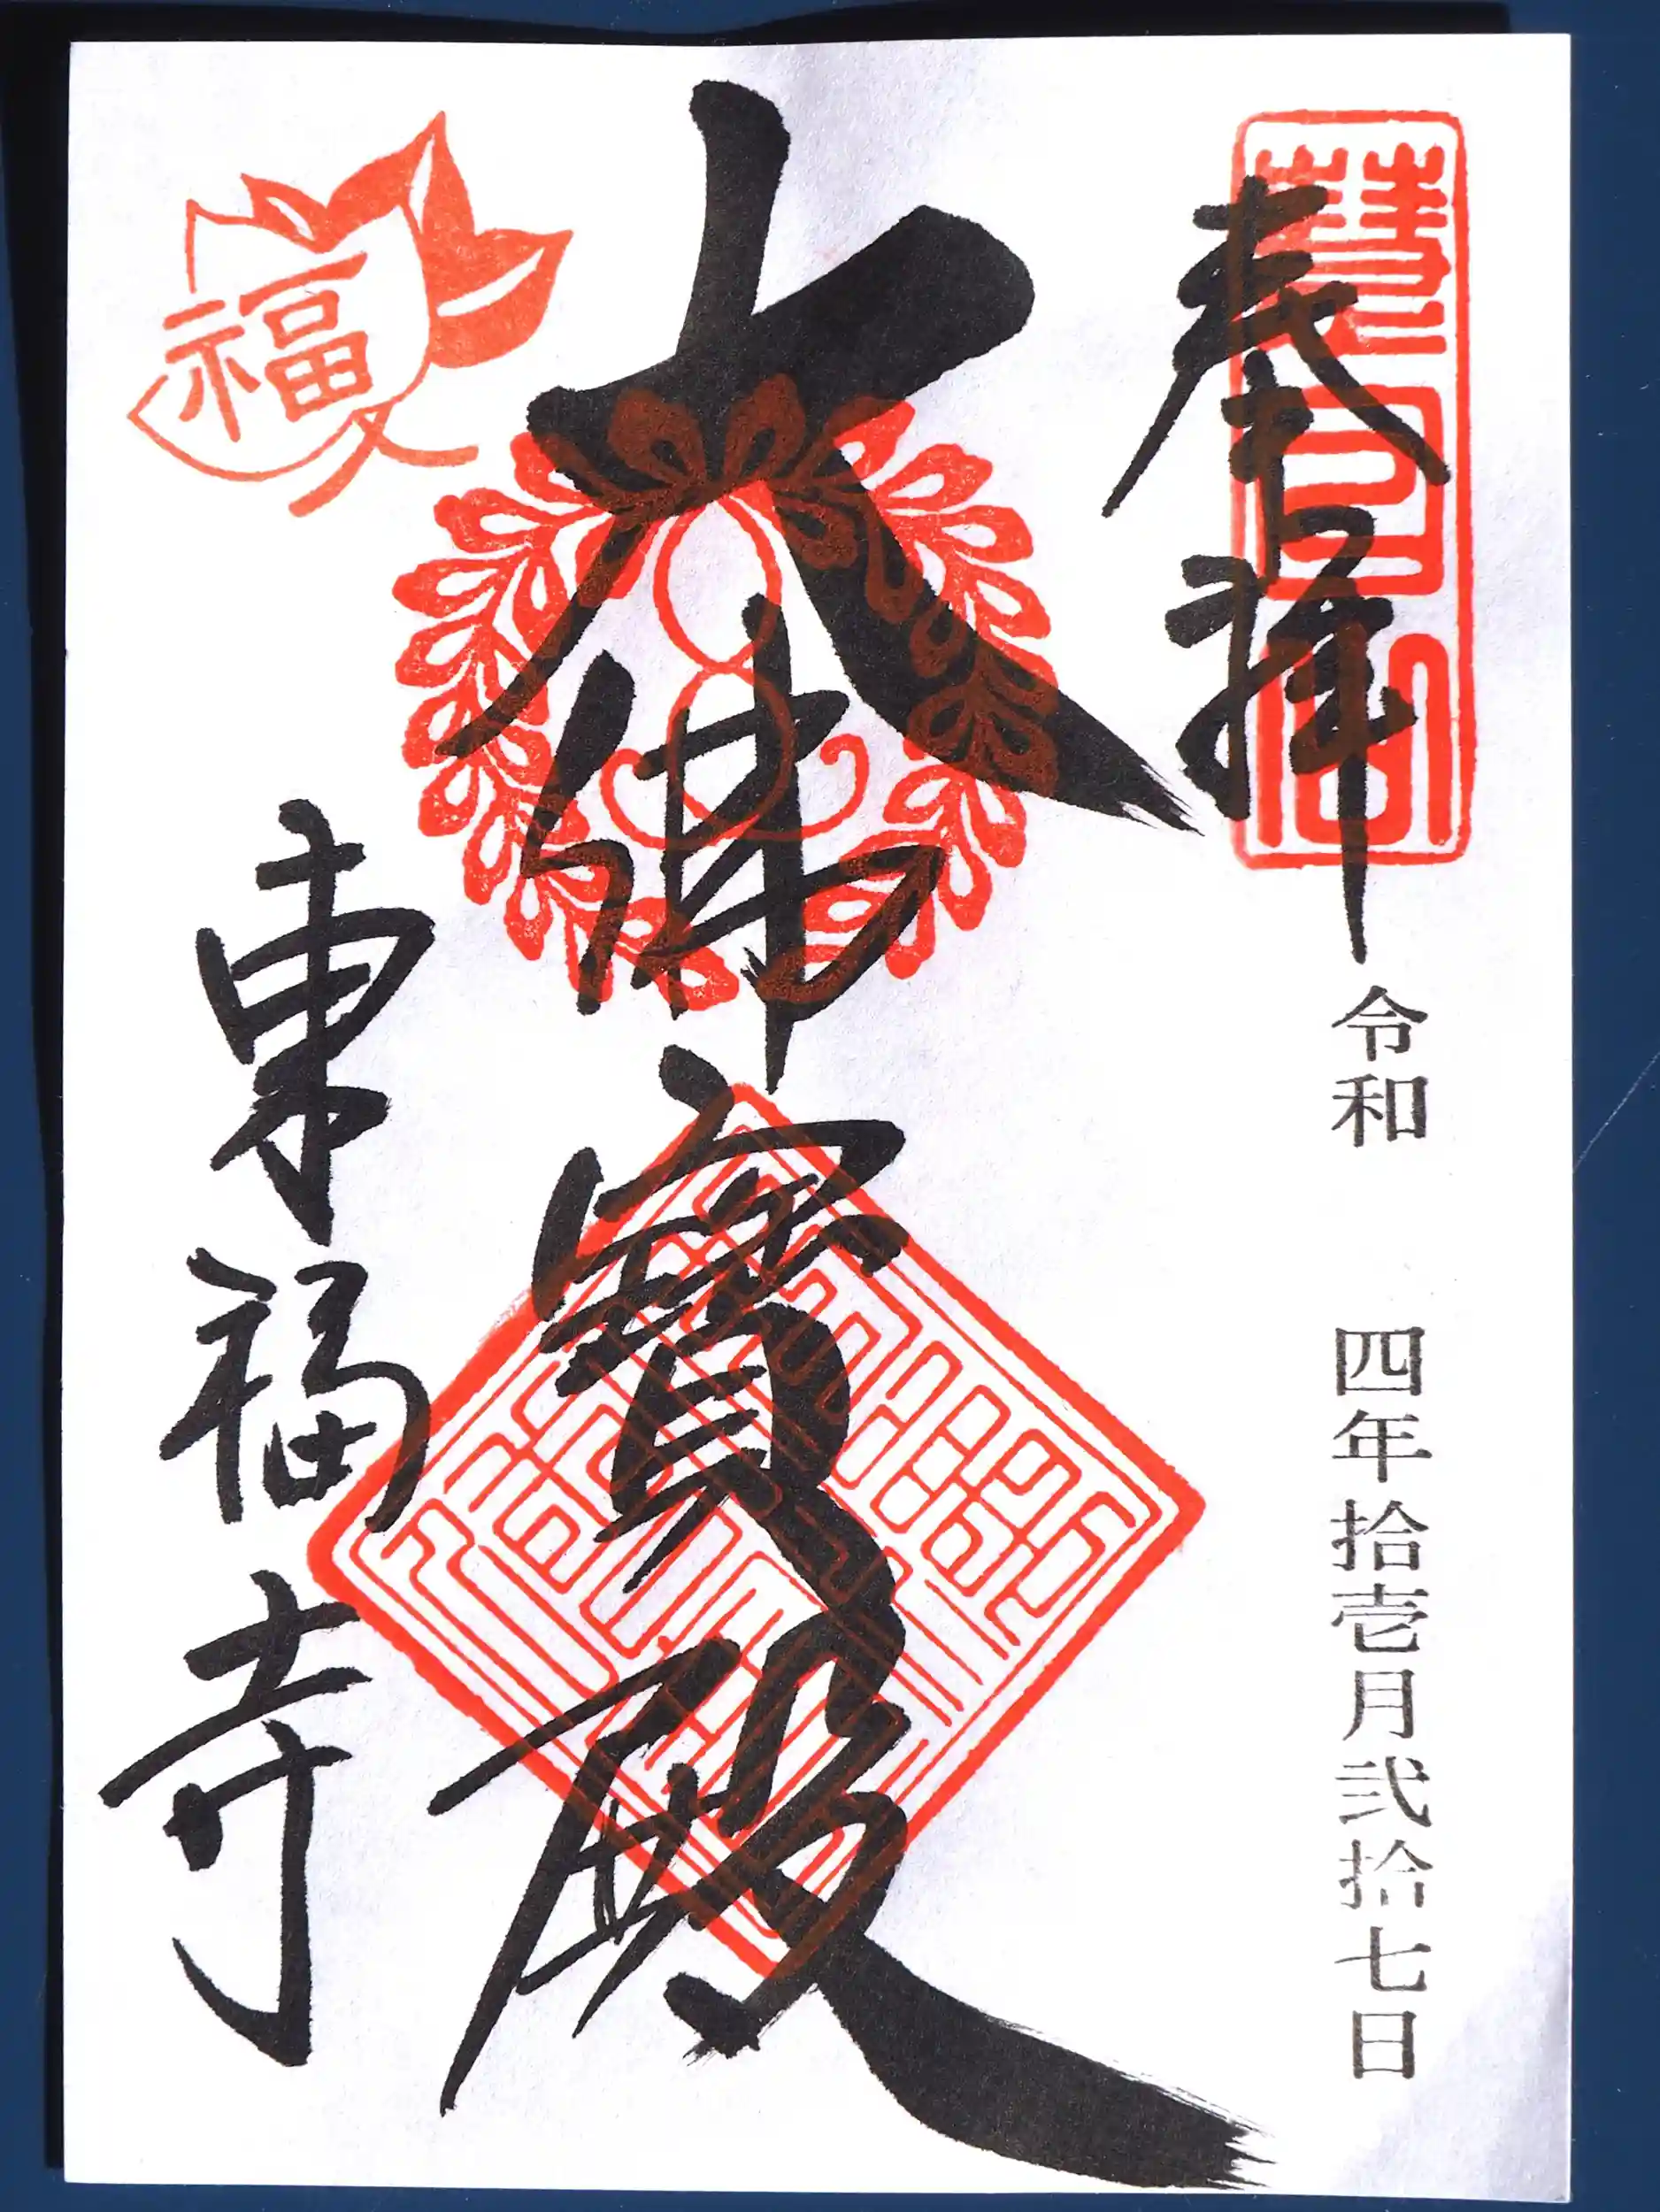 奉拝
令和 四年拾壱月弐拾七日
大佛寳殿
福
東福寺
慧日山